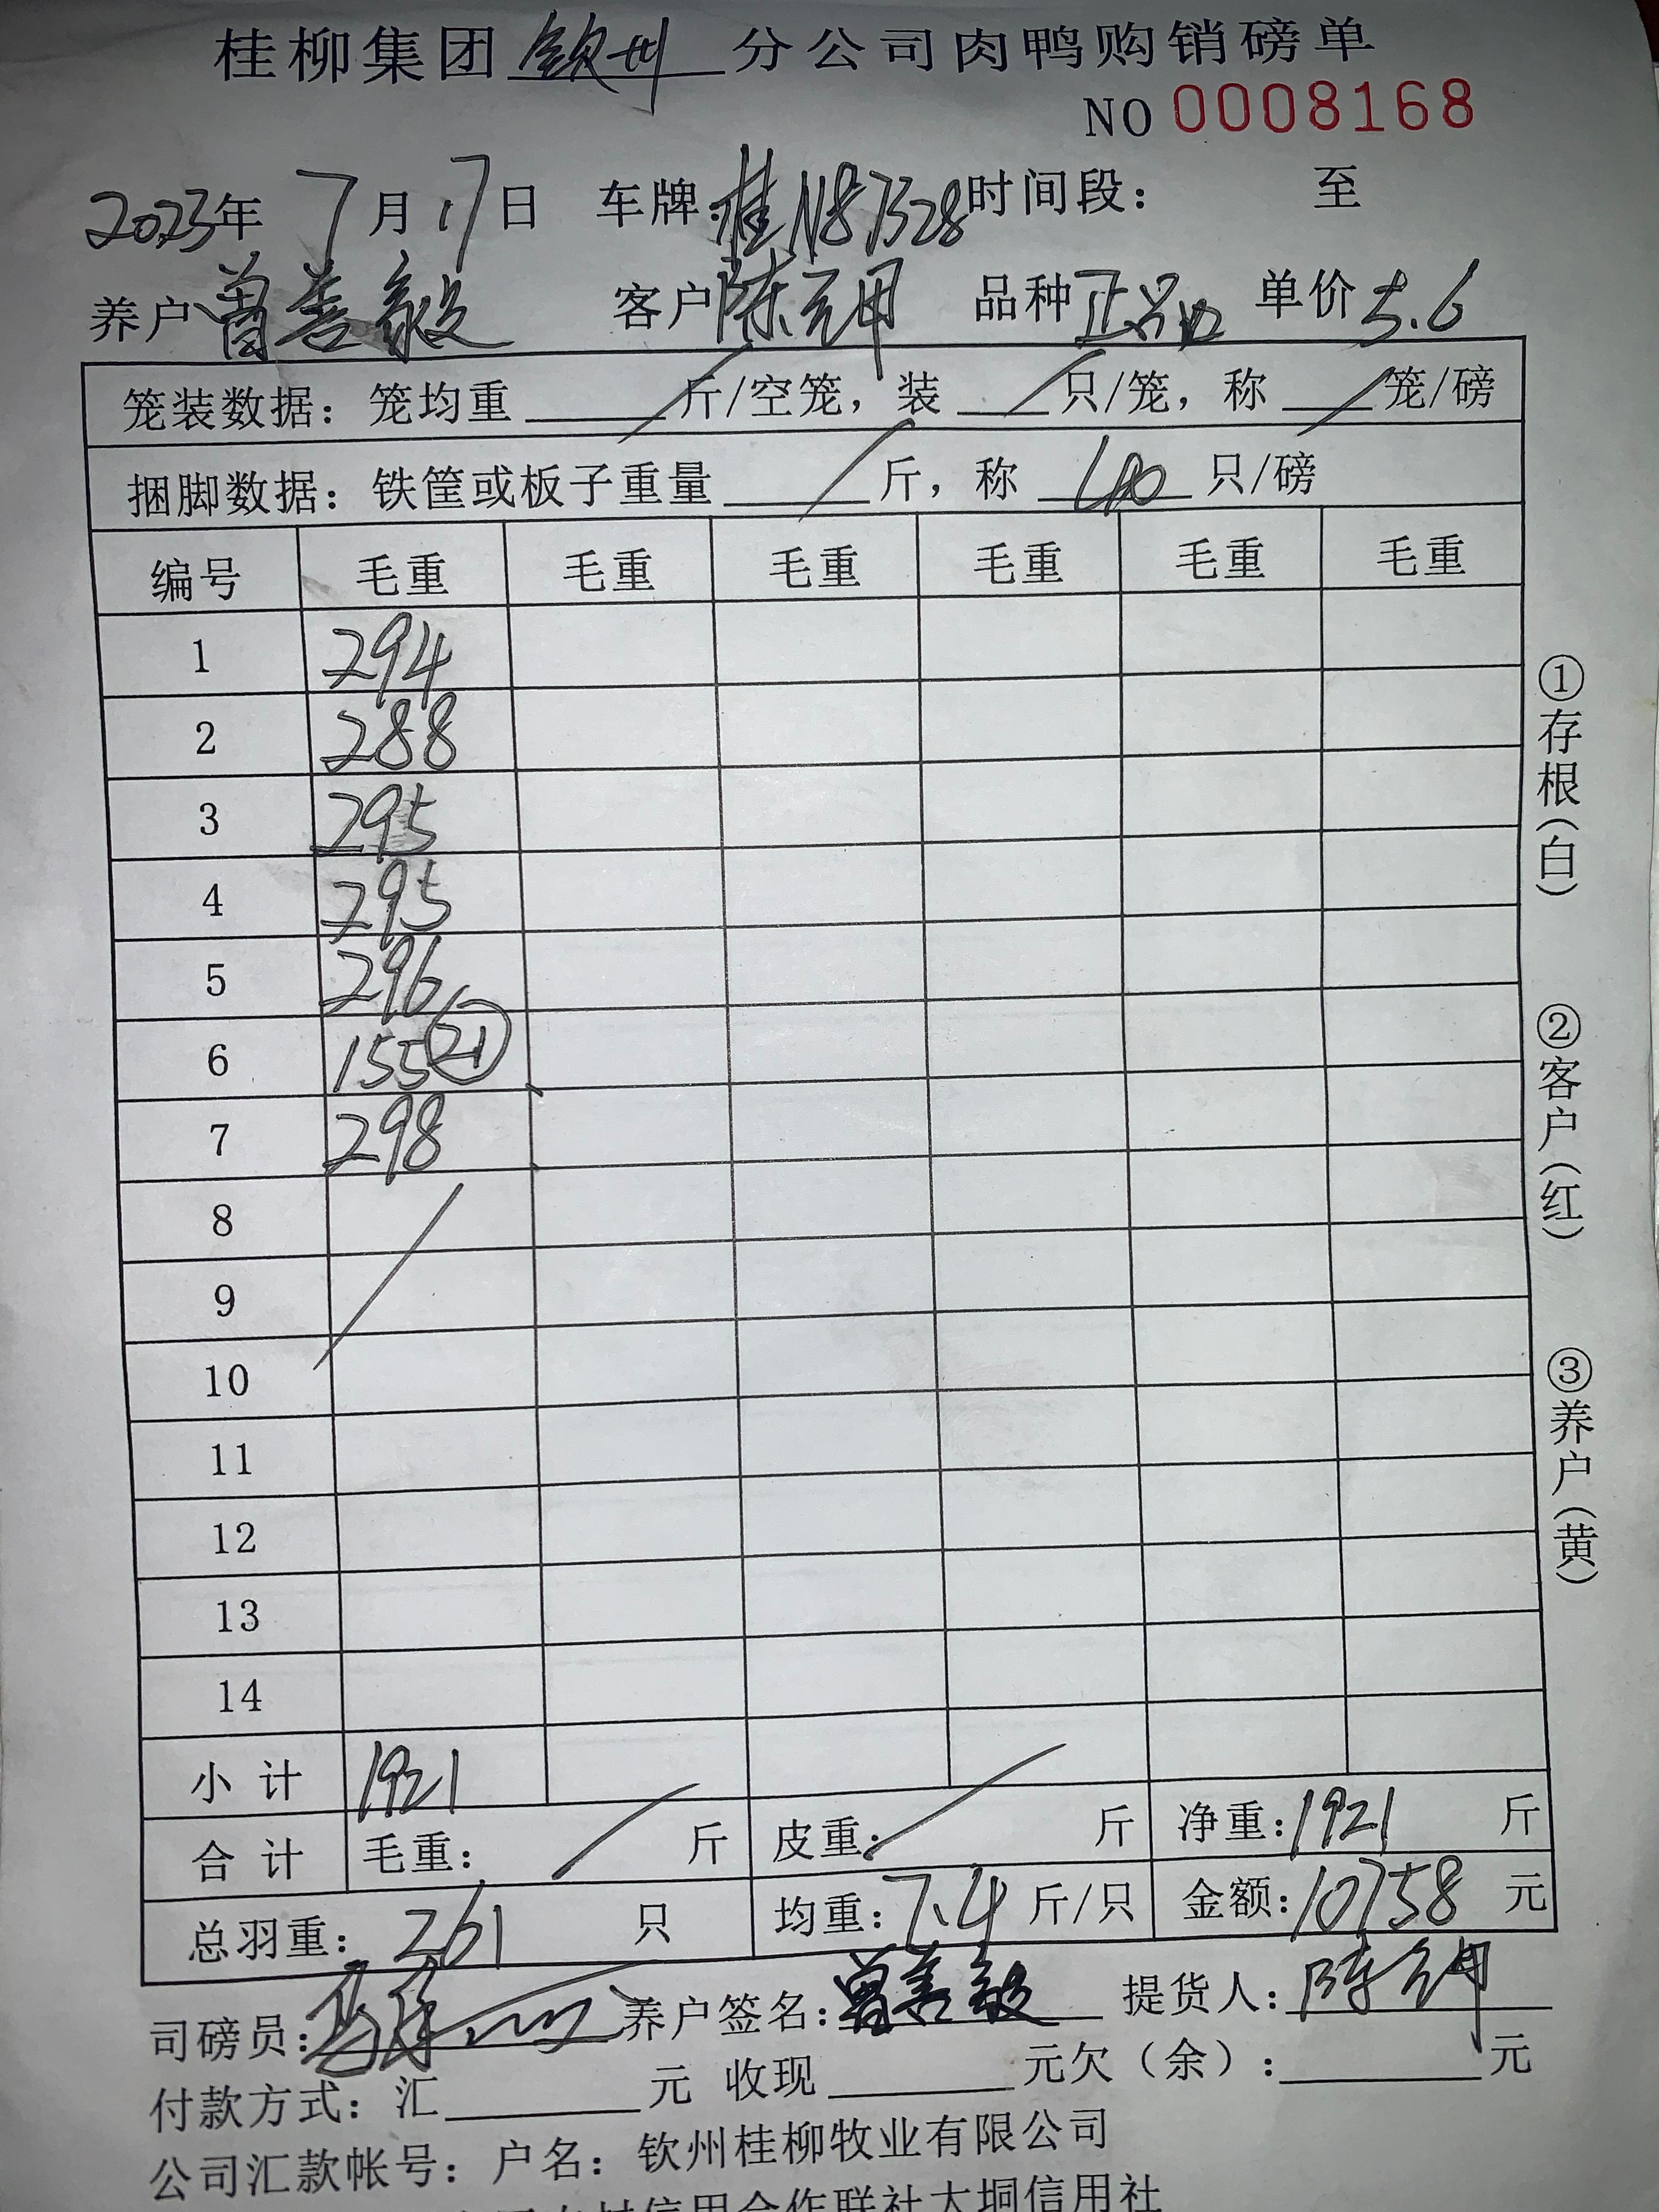 桂柳集团钦州分公司肉鸭购销磅单
NO 0008168
2023年 7月 17日 车牌:桂N87328 时间段: 至
养户 曾善毅 客户 陈元甲 品种 正品 单价 5.6
笼装数据:笼均重 / 斤/空笼,装 / 只/笼,称 / 笼/磅
捆脚数据:铁筐或板子重量 / 斤,称 40 只/磅
编号 毛重 毛重 毛重 毛重 毛重 毛重
1 294
2 288
3 295
4 295
5 296
6 155 (21)
7 298
8
9
10
11
12
13
14
小计 1921
合计 毛重: / 斤 皮重: / 斤 净重:1921 斤
总羽重: 261 只 均重:7.4 斤/只 金额:10758 元
司磅员: 养户签名:曾善毅 提货人:
付款方式:汇 元 收现 元欠(余): 元
公司汇款帐号:户名:钦州桂柳牧业有限公司
农村信用合作联社大垌信用社
①存根(白)
②客户(红)
③养户(黄)